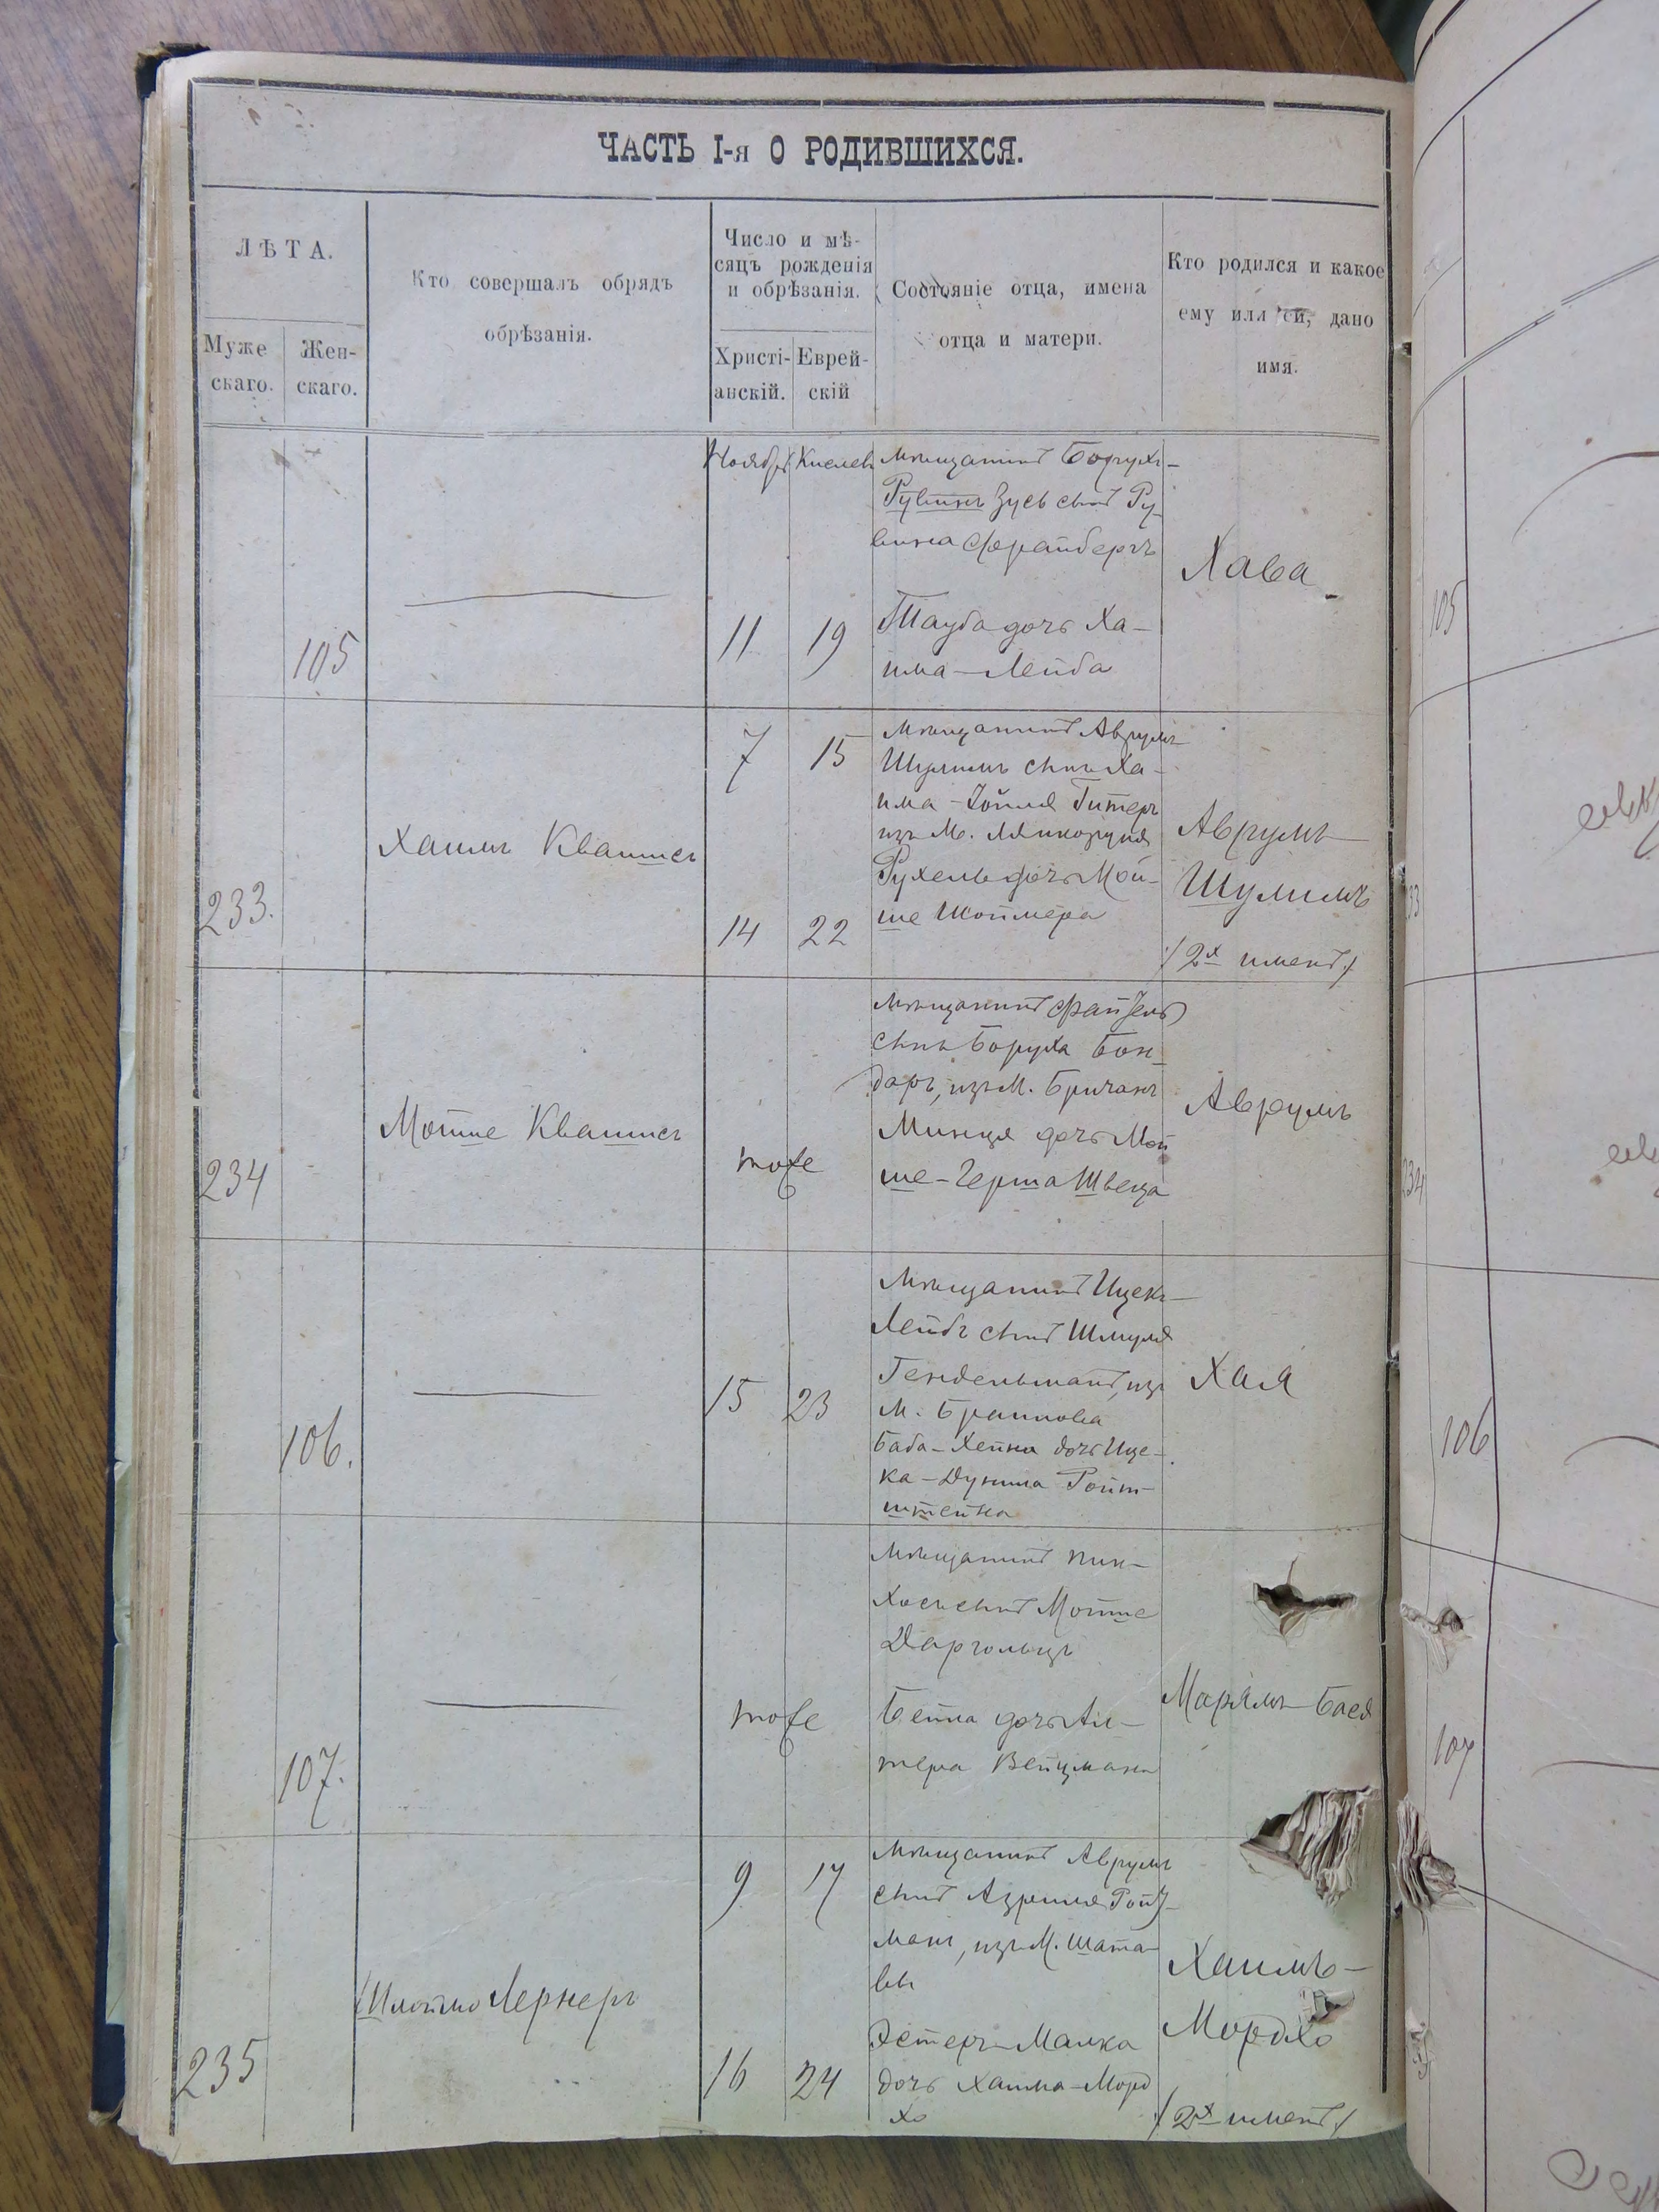 ЧАСТЬ I-я О РОДИВШИХСЯ.
ЛѢТА.
Муже
скаго.
Жен-
скаго.
Кто совершалъ обрядъ
обрѣзанія.
Число и мѣ-
сяцъ рожденія
и обрѣзанія.
Христі-
анскій.
Еврей-
скій
Состояніе отца, имена
отца и матери.
Кто родился и какое
ему или ей, дано
имя.
105
Ноября Кислев
11 19
мѣщанинъ Борухъ-
Рувинъ Зусь сынъ Ру-
вина Фрайбергъ
Тауба дочь Ха-
има-Лейба
Хава
233.
Хаимъ Квитись
7 15
14 22
мѣщанинъ Аврумъ
Шулимъ сынъ Ха-
има-Іойля Гитеръ
изъ М.
Рухель дочь Мой-
ше Шоймера
Аврумъ-
Шулимъ
/2х именъ/
234
Мотие
тоже
мѣщанинъ Файзель
сынъ Боруха Бон-
даръ, изъ М. Бричанъ
Минця дочь Мой
ше-Герша Швеца
Аврумъ
106.
15 23
мѣщанинъ Ицекъ-
Лейбъ сынъ Шмуля
Генделъманъ, изъ
М. Браилова
Баба-Хейна дочь Ице-
ка-Дувида Ройт-
штейна
Хая
107.
тоже
мѣщанинъ Пин-
хосъ сынъ Мотте
Даргольцъ
Бейла дочь Аль-
тера Вейцмана
Марьямъ-Бася
235
Шлоймо Лернеръ
9 17
16 24
мѣщанинъ Аврумъ
сынъ Азриля Ройз-
манъ, изъ М. Шата-
вы
Эстеръ-Малка
дочь Хаима-Морд
хо
Хаимъ-
Мордхо
/2х именъ/
105
234
106
107